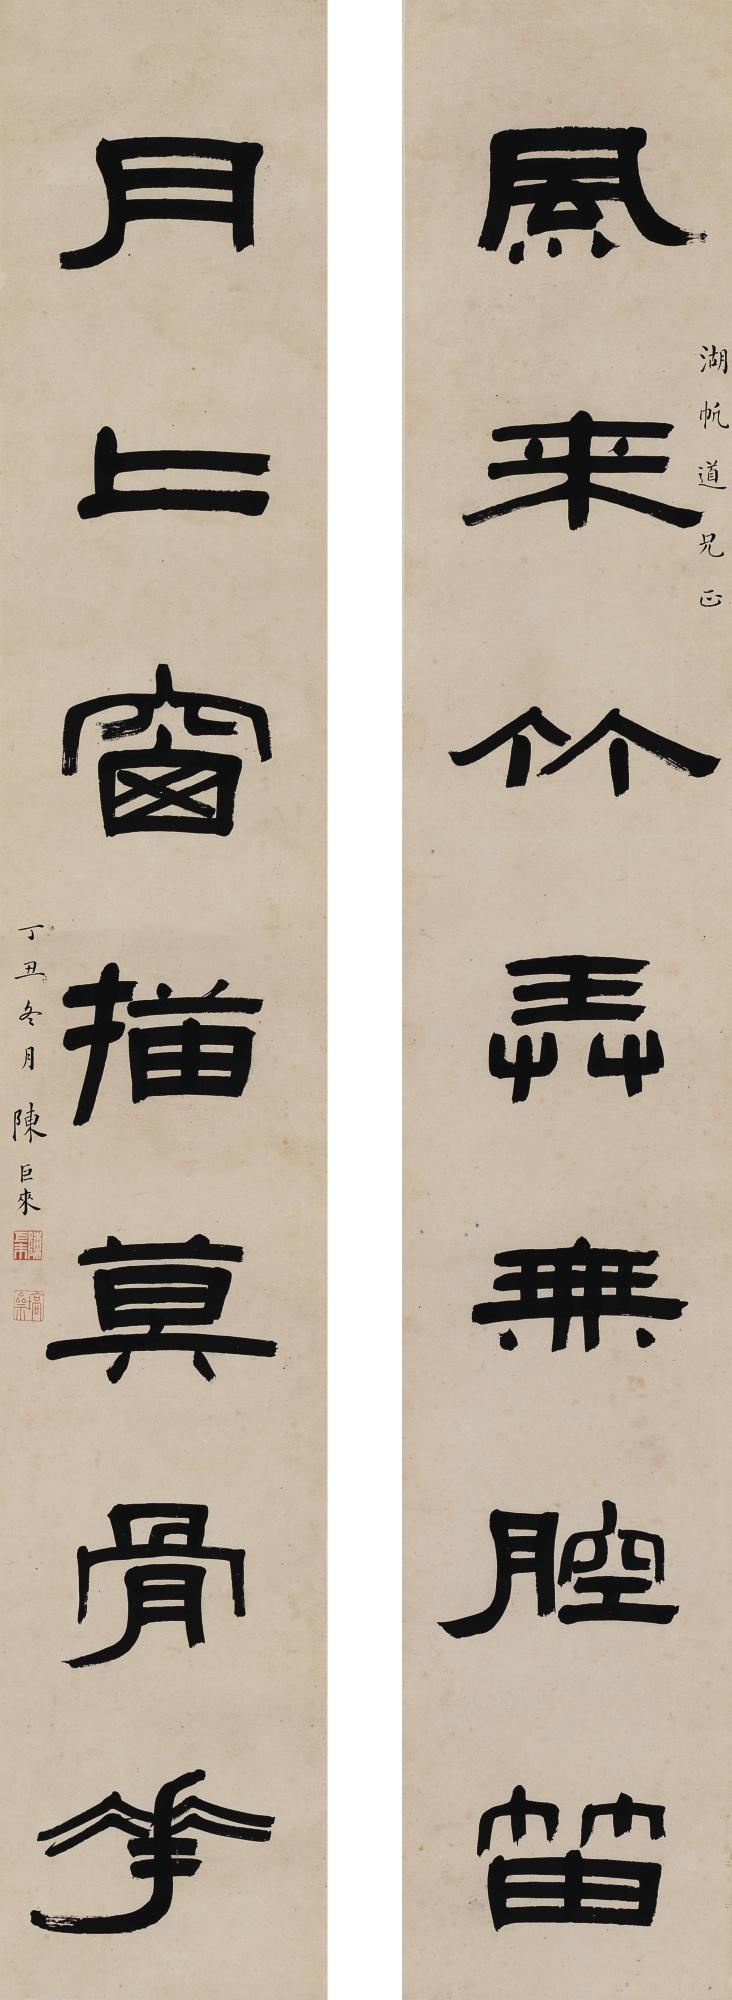 湖帆道兄正
風来竹弄無腔笛
月上窗描莫骨華
丁丑冬月 陳巨來